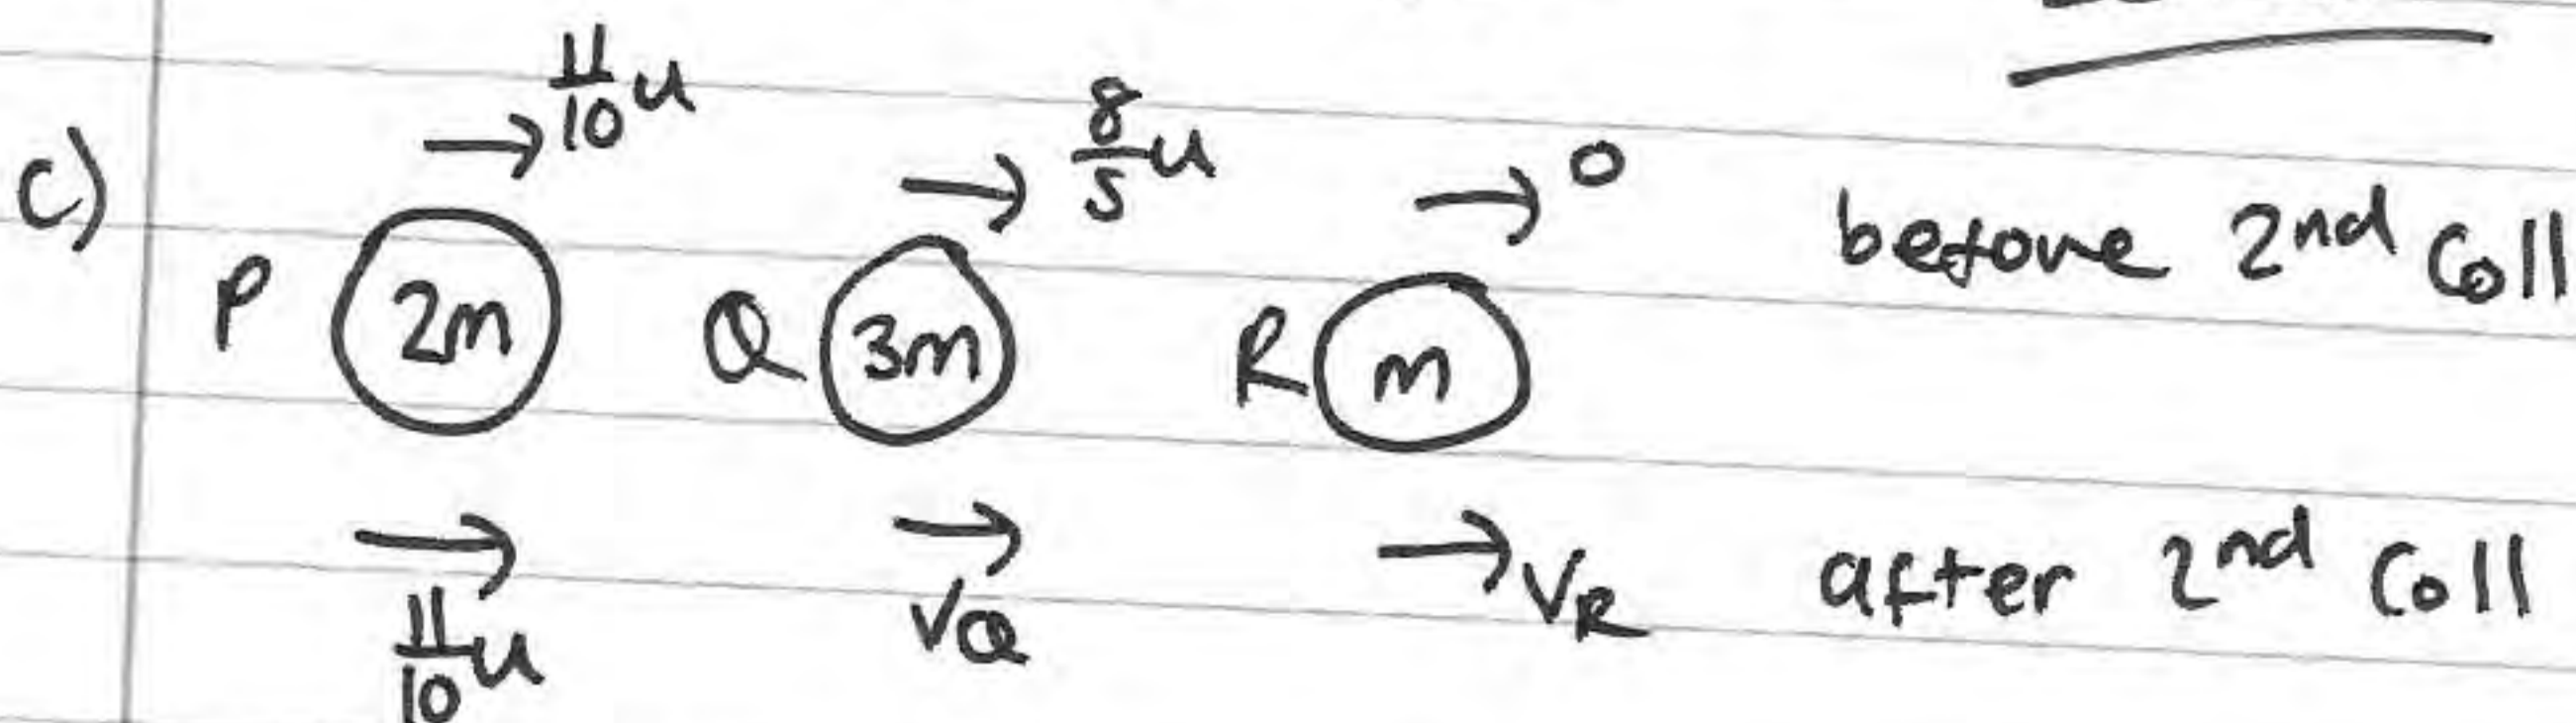 c) → 11/10 u → 8/5 u → 0 before 2nd Coll
P 2m Q 3m R m
→ 11/10 u → VQ → VR after 2nd Coll